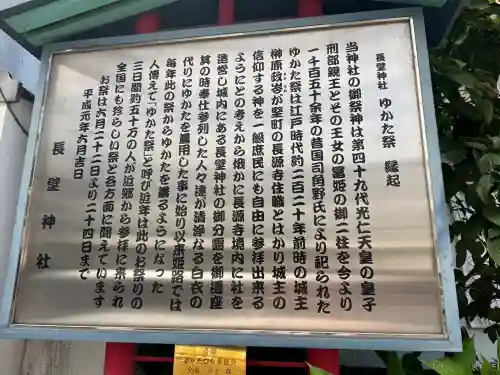 長壁神社 ゆかた祭 縁起
当神社の御祭神は第四十九代光仁天皇の皇子
刑部親王とその王女の富姫の御二柱を今より
一千百五十余年の昔国司角野氏により祀られた
ゆかた祭は江戸時代約二百二十年前時の城主
榊原政岑が竪町の長源寺住職とはかり城主の
信仰する神を一般庶民にも自由に参拝出来る
ようにとの考えから俄かに長源寺境内に社を
造営し城内にある長壁神社の御分霊を御遷座
其の時奉仕参列した人々達が清浄なる白衣の
代りにゆかたを着用した事に始り以来姫路では
毎年此の祭からゆかたを着るようになった
人傳えて「ゆかた祭」と呼び近年は此のお祭りの
三日間約五十万の人が近郊から参拝に来られ
全国にも珍らしい祭と各方面に聞えています
お祭は六月二十二日より二十四日まで
平成元年六月吉日
長壁神社